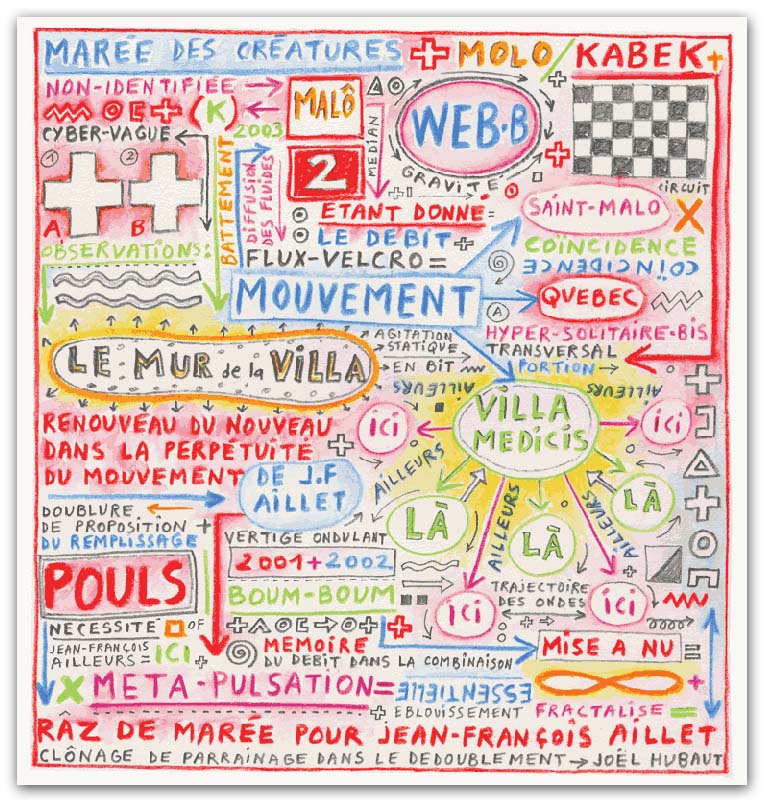 MARÉE DES CRÉATURES + MOLO/KABEK+
NON-IDENTIFIÉE
(K)
MALÔ
WEB.B
CYBER-VAGUE
2003
MEDIAN
GRAVITÉ
1 2
A B
BATTEMENT
DIFFUSION
DES FLUIDES
2
CIRCUIT
ETANT DONNÉ:
SAINT-MALO X
LE DEBIT +
COÏNCIDENCE
COÏNCIDENCE
OBSERVATIONS:
FLUX-VELCRO=
MOUVEMENT
A
QUEBEC
HYPER-SOLITAIRE-BIS
LE MUR de la VILLA
AGITATION
STATIQUE
EN BIT
TRANSVERSAL
PORTION
AILLEURS
AILLEURS
RENOUVEAU DU NOUVEAU
DANS LA PERPÉTUITÉ
DU MOUVEMENT
ici
VILLA
MEDICIS
ici
DE J.F
AILLET
AILLEURS
AILLEURS
AILLEURS
AILLEURS
LÀ
LÀ
LÀ
DOUBLURE
DE PROPOSITION +
DU REMPLISSAGE
VERTIGE ONDULANT
2001+2002
POULS
BOUM-BOUM
TRAJECTOIRE
DES ONDES
ici
ici
NECESSITÉ OF
JEAN-FRANÇOIS
AILLEURS = ICI +
MEMOIRE
DU DEBIT DANS LA COMBINAISON
MISE A NU =
X META-PULSATION=
ESSENTIELLE
+ EBLOUISSEMENT
FRACTALISE =
RÂZ DE MARÉE POUR JEAN-FRANÇOIS AILLET
CLÔNAGE DE PARRAINAGE DANS LE DEDOUBLEMENT → JOËL HUBAUT